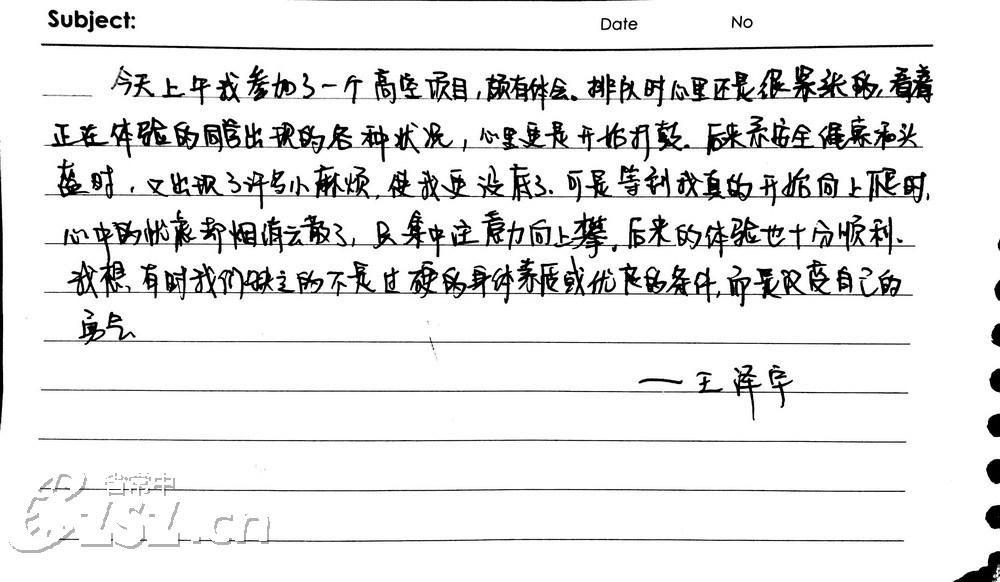 Subject:
Date No
今天上午我参加了一个高空项目,颇有体会。排队时心里还是很紧张的,看着
正在体验的同学出现的各种状况,心里更是开始打鼓。后来系安全绳索和头
盔时,又出现了许多小麻烦,使我更没底了。可是等到我真的开始向上爬时,
心中的忧虑却烟消云散了,只集中注意力向上攀。后来的体验也十分顺利。
我想,有时我们缺乏的不是过硬的身体素质或优良的条件,而是改变自己的
勇气。
——王泽宇
省常中
CZSZ.cn